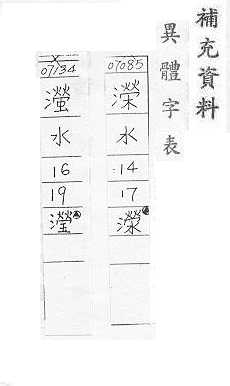 補充資料
異體字表
07085
濚
水
14
17
濴
07134
㶈
水
16
19
瀅